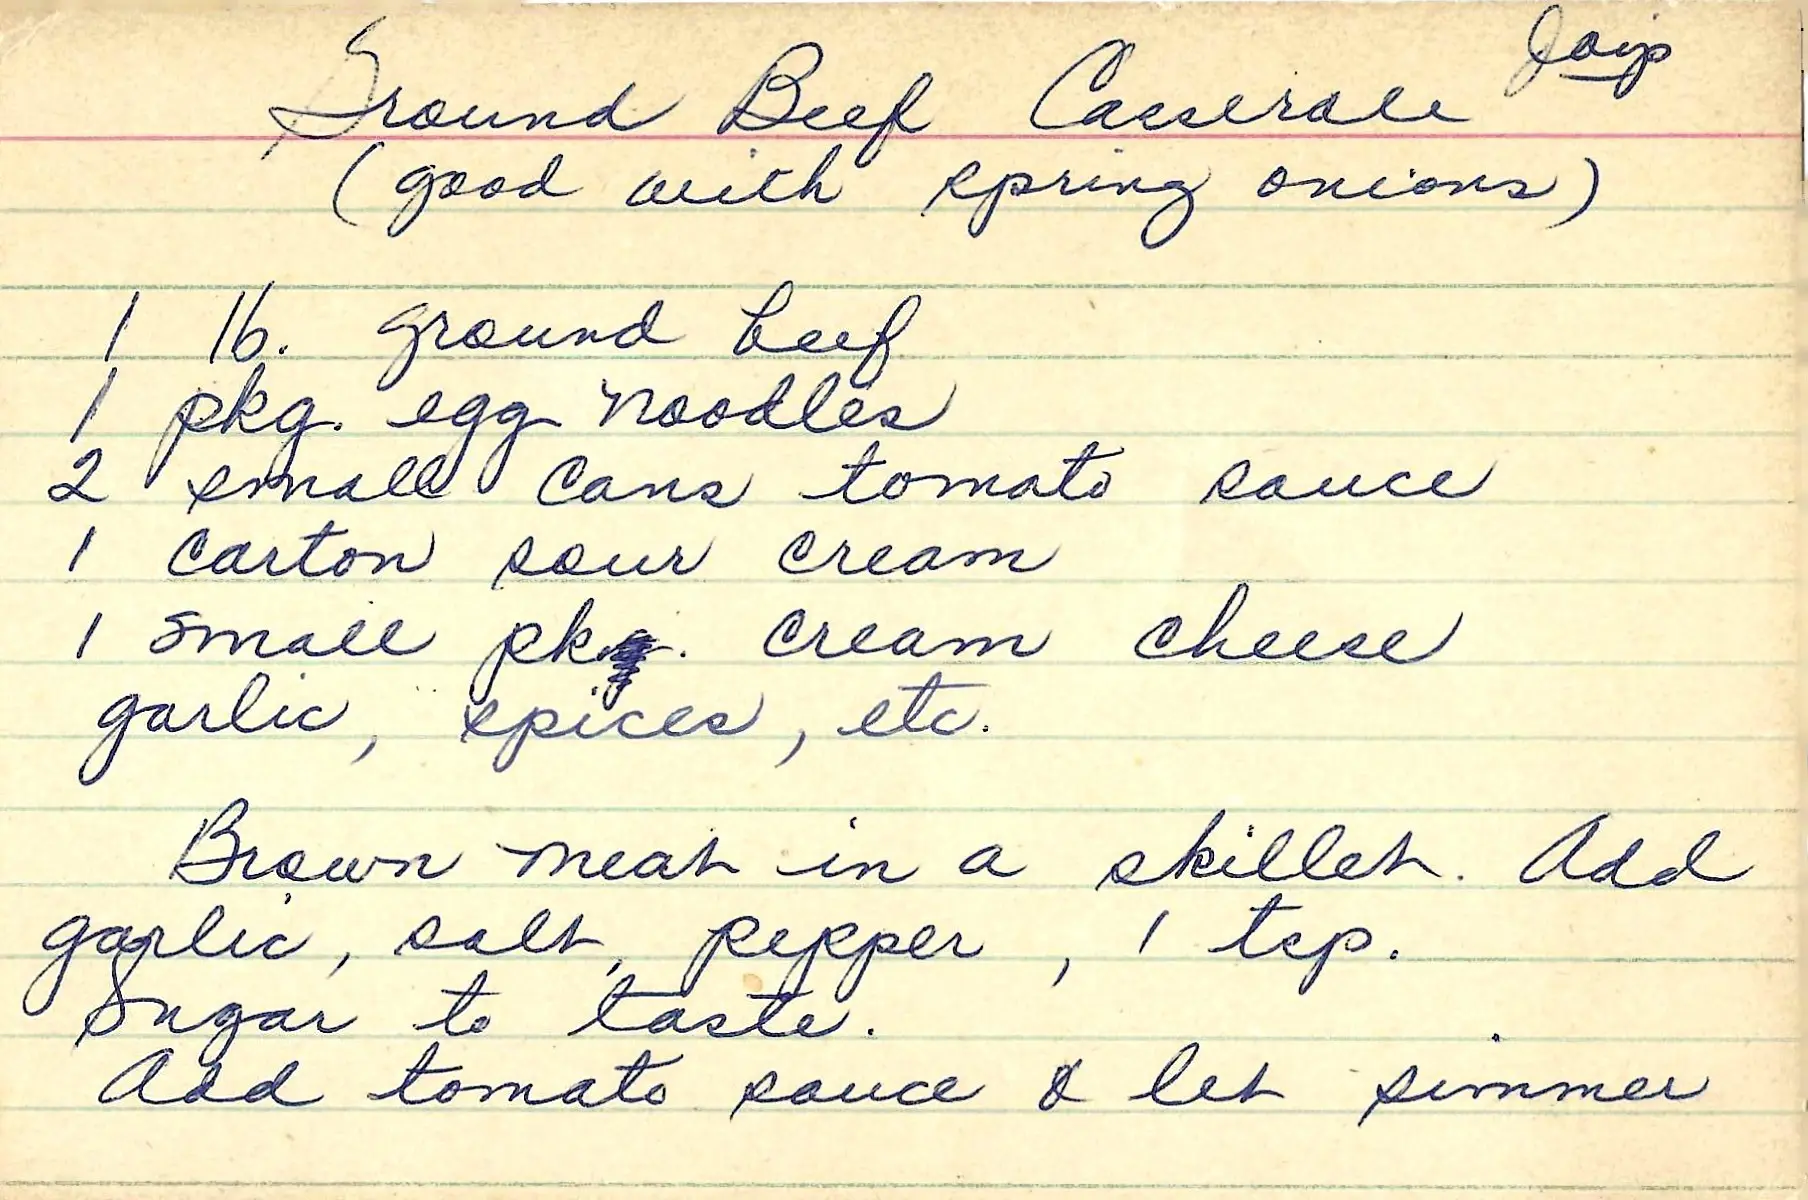 Ground Beef Casserole
(good with spring onions)
1 lb. ground beef
1 pkg. egg noodles
2 small cans tomato sauce
1 carton sour cream
1 small pkg. cream cheese
garlic, spices, etc.
Brown meat in a skillet. Add
garlic, salt, pepper, 1 tsp.
Sugar to taste.
Add tomato sauce & let simmer